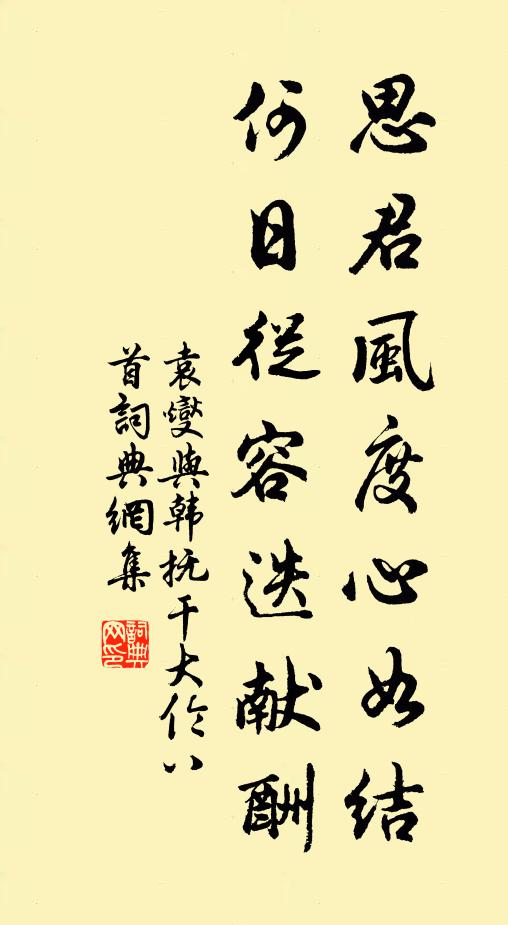 思君風度心如结
何日從容迭献酬
袁燮與韩抚干大伦八
首詞典網集
詞典网印